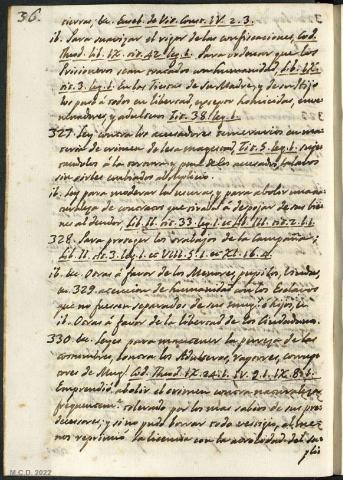 36.
tierras, &c. Euseb. de Vit. Const. IV. 2. 3.
it. Para suavizar el rigor de las confiscaciones, Cod.
Theod. lib. IX. tit. 42. leg. 1. Para ordenar que los
Prisioneros sean tratados con humanidad, lib. IX.
tit. 3. leg. 1. En las fiestas de su Madre, y de su Hijo
los puso á todos en libertad, excepto homicidas, enve
nenadores, y adulteros Tit. 38. leg. 1.
327. Ley contra los acusadores temerarios en ma
teria de crimen de lesa magestad, Tit. 5. leg. 1. suje
tandolos á la tortura y pena de los acusados, tratados
sin serles embiados al suplicio.
it. Ley para moderar la usura, y para abolir una
de contratos que tiraba á despojar de sus bie
nes al deudor, lib. II. tit. 33. leg. 1. et lib. III. tit. 2. l. 1.
328. Para proteger los trabajos de la Campaña;
lib. II. tit. 3. leg. 1. et VIII. 5. 1. et XI. 16. 4.
it. &c. Otras á favor de los Menores, pupilos, Viudas,
&c. 329. accion de humanidad con los Esclavos
que no fuesen separados de sus mugeres é hijos, &c.
it. Otras á favor de la libertad de los Ciudadanos.
330. &c. leyes para mantener la pureza de las
costumbres, contra los Adulteros, raptores, corrup
tores de Mugs. Cod. Theod. IX. 24. l. 1. V. 9. 1. IX. 8. l.
Emprendió abolir el crimen contra naturaleza
frequentem.te tolerado por los mas sabios de sus pre
decesores; y si no pudo borrar todo vestigio, al me
nos reprimió la licencia con la atrocidad del su
plic
M.C.D. 2022